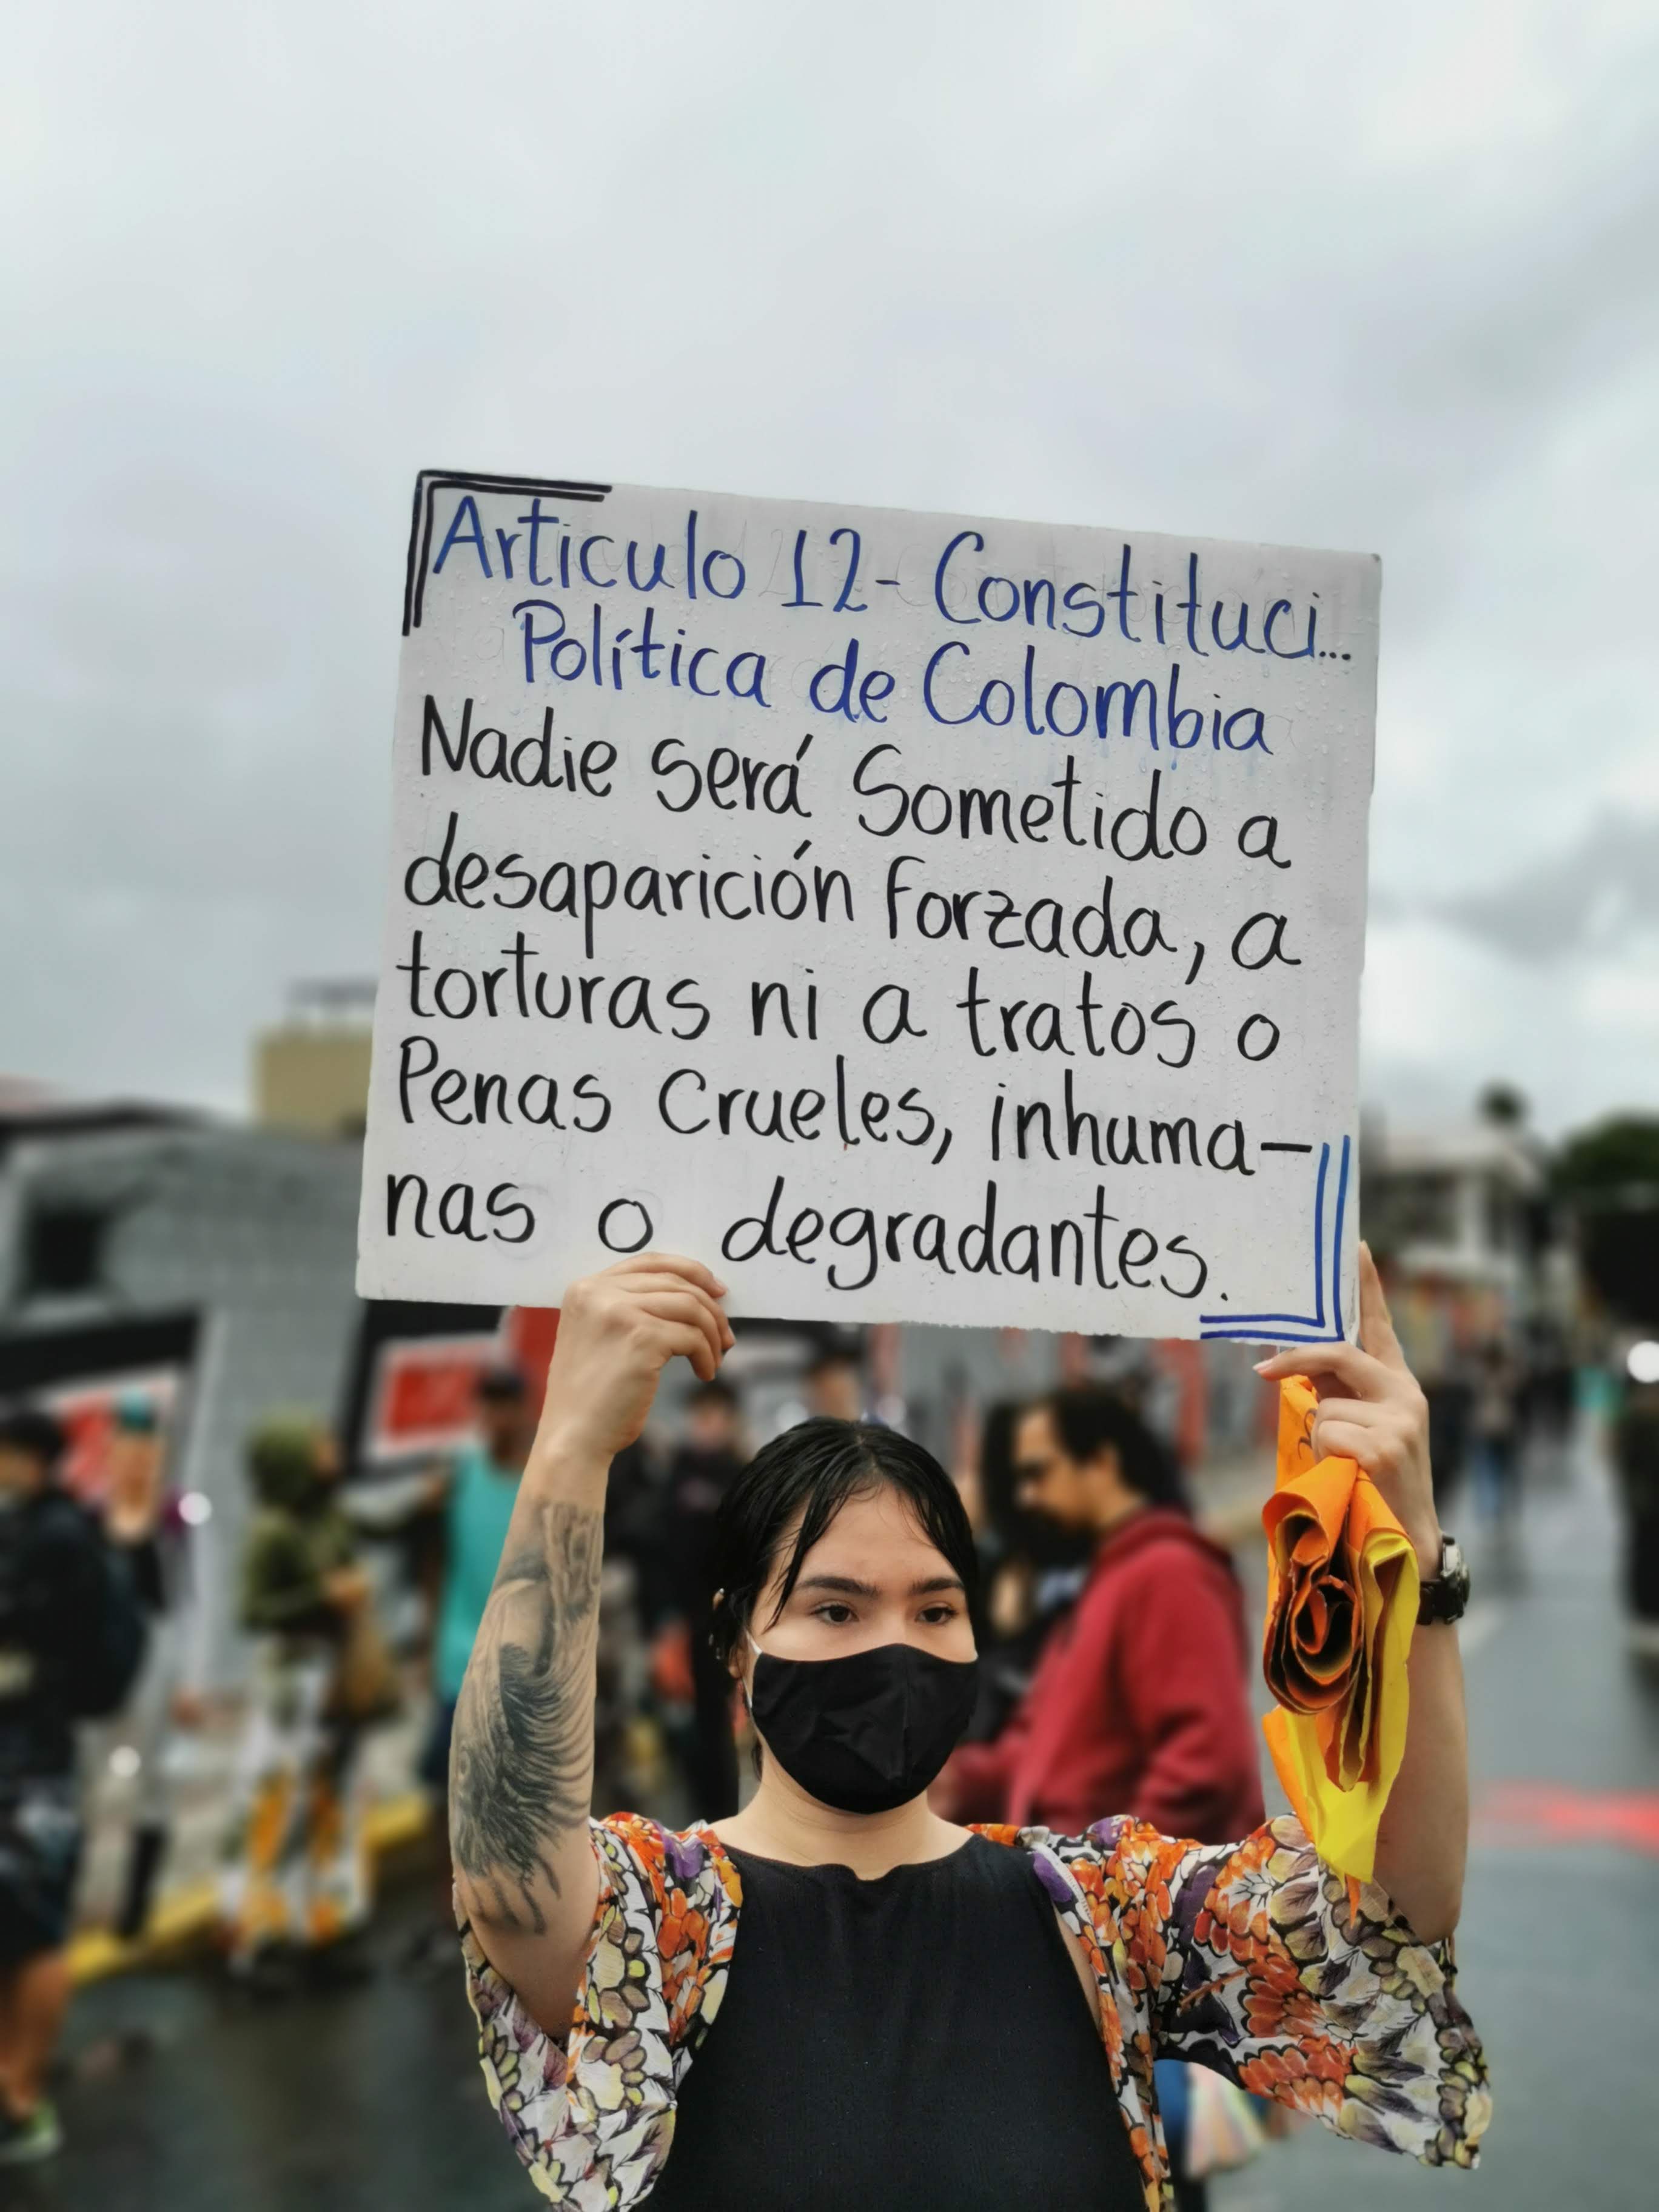 Articulo 12- Constituci...
Política de Colombia
Nadie será Sometido a
desaparición forzada, a
torturas ni a tratos o
Penas Crueles, inhuma-
nas o degradantes.